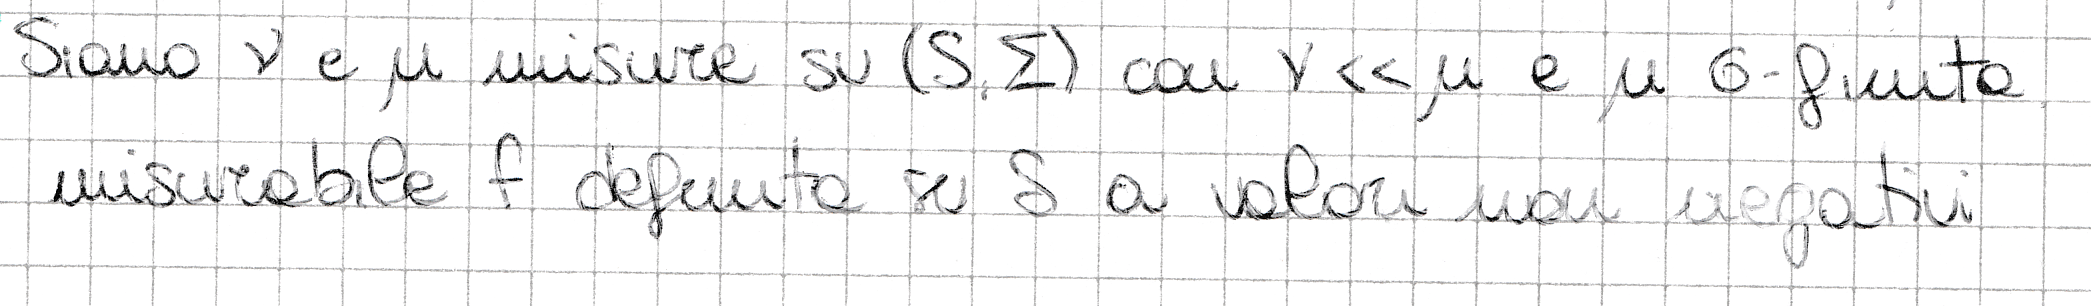 Siano ν e μ misure su (S, Σ) con ν << μ e μ σ-finita.
misurabile f definita su S a valori non negativi